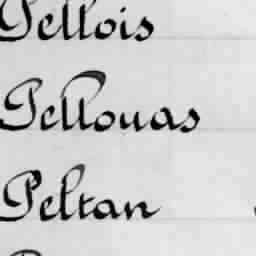 Pellois
Pellouas
Peltan